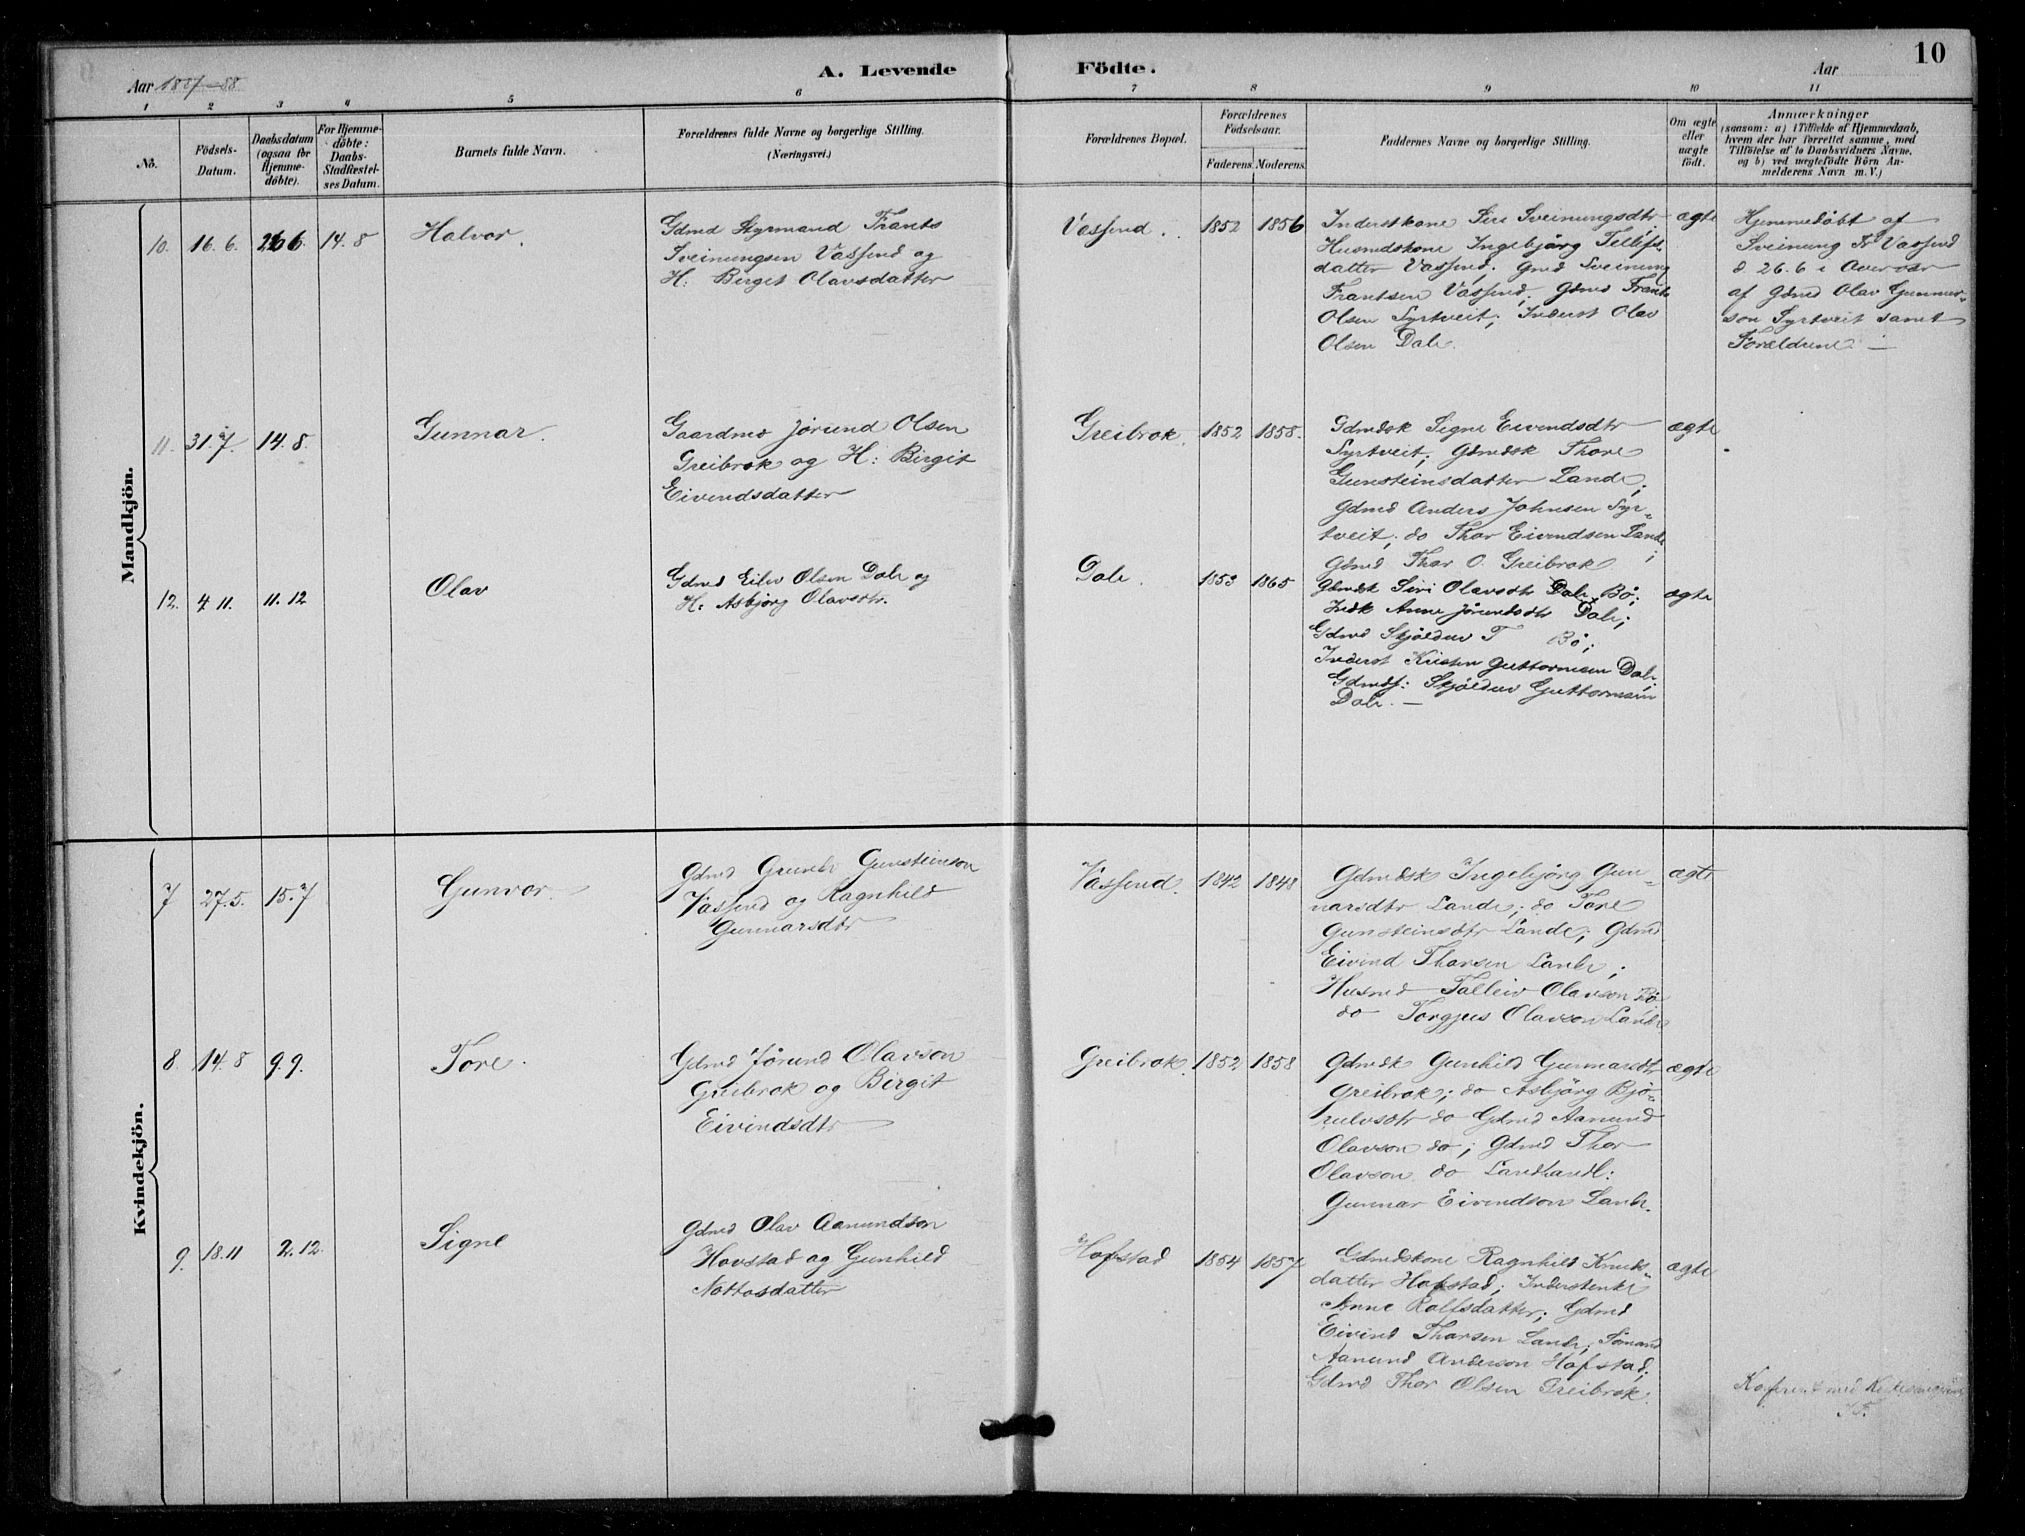 10
Aar 1887-88
A. Levende
Födte.
Aar
1 2 3 4 5 6 7 8 9 10 11
No.
Födsels-Datum.
Daabsdatum (ogsaa for Hjemme-döbte).
For Hjemme-döbte: Daabs-Stadfæstel-ses Datum.
Barnets fulde Navn.
Forældrenes fulde Navne og borgerlige Stilling.
(Næringsvei.)
Forældrenes Bopæl.
Forældrenes Födselsaar.
Faderens. Moderens.
Faddernes Navne og borgerlige Stilling.
Om ægte eller uægte födt.
Anmærkninger
(saasom: a) i Tilfælde af Hjemmedaab,
hvem der har forrettet samme, med
Tilföielse af to Daabsvidners Navne,
og b) ved uægtefödte Börn An-
melderens Navn m. V.)
Mandkjön.
10. 16.6. 26.6. 14.8 Halvor.
Gdmd Styrmand Frants
Sveinungsen Vassend og
H: Birgit Olavsdatter
Vassend. 1852 1856
Inderstkone Siri Sveinungsdtr
Husmdskone Ingebjörg Tellefs-
datter Vassend; Gmd Sveinung
Frantsen Vassend; Gdmd Frants
Olsen Syrtveit; Inderst Olav
Olsen Dale.
ægte
Hjemmedöbt af
Sveinung Fr Vassend
d. 26.6 i Overvær
af Gdmd Olav Gunnar-
son Syrtveit samt
Forældrene. —
11. 31.7. 14.8. Gunnar.
Gaardmd Jörund Olsen
Greibrok og H: Birgit
Eivendsdatter
Greibrok. 1852 1858.
Gdmdsk Signe Eivendsdtr
Syrtveit; Gdmdsk Thore
Gunsteinsdatter Lande;
Gdmd Anders Johnsen Syr-
tveit; do Thor Eivendsen Lande;
Gdmd Thor O. Greibrok
ægte
12. 4.11. 11.12 Olav
Gdmd Eilev Olsen Dale og
H: Asbjörg Olavsdtr.
Dale. 1853 1865
Gdmdsk Siri Olavsdtr Dale, Bö;
Indk Anne Jörundsdtr Dale;
Gdmd Skjöldulv T Bö;
Inderst Kristen Guttormsen Dale;
Gdmdf: Skjöldulv Guttormsen
Dale. —
ægte
Kvindekjön.
7 27.5. 15.7 Gunvor.
Gdmd Gunsteinson
Vassend og Ragnhild
Gunnarsdtr
Vassend. 1842 1848
Gdmdsk Ingebjörg Gun-
narsdtr Lande; do Tore
Gunsteinsdtr Lande; Gdmd
Eivind Thorsen Lande;
Husmd Talleiv Olavson Bö
do Torgjus Olavson Lande
ægte
8 14.8 9.9. Tore.
Gdmd Jörund Olavson
Greibrok og Birgit
Eivindsdtr
Greibrok. 1852 1858
Gdmdk Gunhild Gunnarsdtr
Greibrok; do Asbjörg Bjö-
rulvsdtr do Gdmd Aamund
Olavson do; Gdmd Thor
Olavson do Landhandl:
Gunnar Eivendson Lande.
ægte
9. 18.11 2.12. Signe
Gdmd Olav Aamundson
Hovstad og Gunhild
Nottosdatter
Hofstad 1854 1857
Gdmdskone Ragnhild Knuds-
datter Hofstad; Inderstenke
Anne Rolfsdatter; Gdmd
Eivind Thorsen Lande; Sömand
Aamund Anderson Hofstad;
Gdmd Thor Olsen Greibrok.
ægte